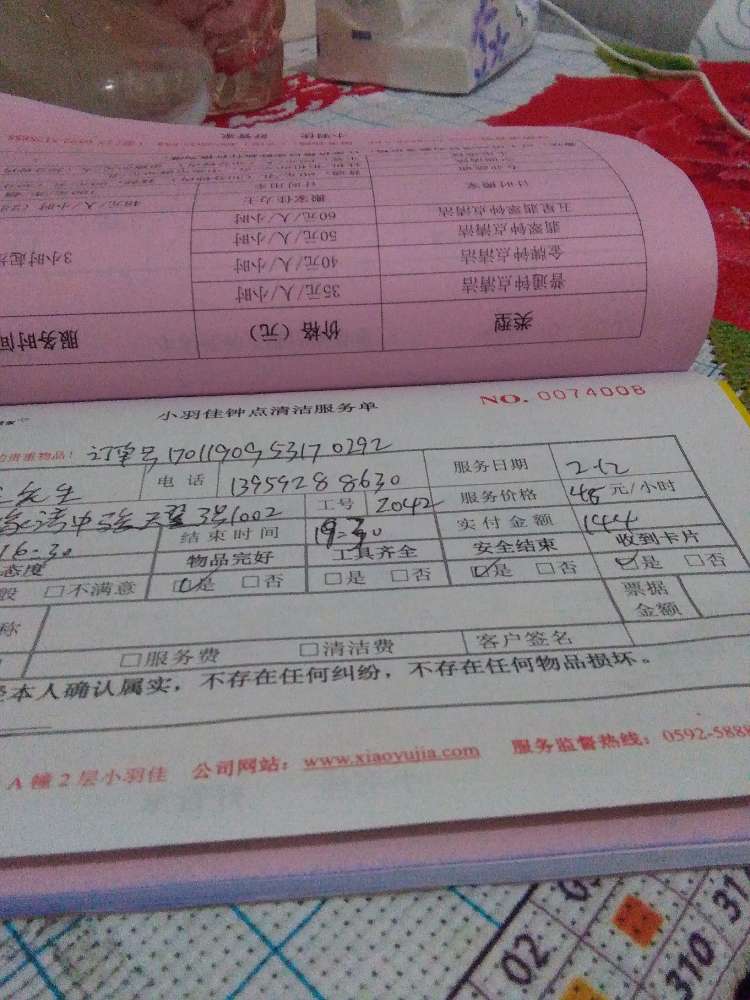 小羽佳 好管家
计时搬家 搬家佳力士 计时用车 48元/人/小时
五星翡翠钟点清洁 60元/人/小时
翡翠钟点清洁 50元/人/小时
金牌钟点清洁 40元/人/小时 3小时起
普通钟点清洁 35元/人/小时
类型 价格（元） 服务时间
小羽佳钟点清洁服务单 NO. 0074008
的贵重物品！ 订单号 1701190953170292
先生 电话 13959288630 服务日期 2.12
3号1002 工号 2042 服务价格 48 元/小时
16:30 结束时间 19:30 实付金额 144
态度 物品完好 工具齐全 安全结束 收到卡片
□不满意 □是 □否 □是 □否 □是 □否 □是 □否
称 票据金额
□服务费 □清洁费 客户签名
本人确认属实，不存在任何纠纷，不存在任何物品损坏。
A幢2层小羽佳 公司网站：www.xiaoyujia.com 服务监督热线：0592-5888
02
310
31